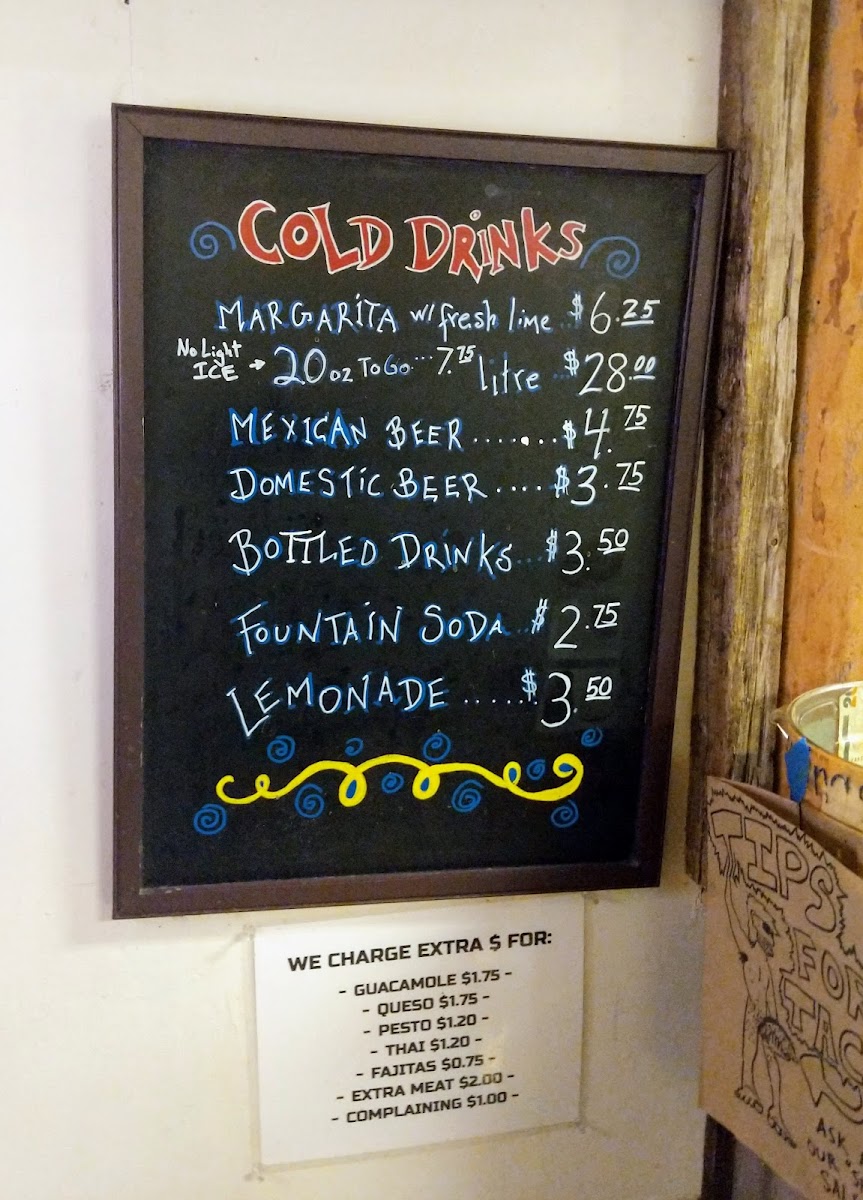 COLD DRINKS
MARGARITA w/ fresh lime .. $6.25
No Light
ICE → 20 oz To Go ... 7.75 litre .. $28.00
MEXICAN BEER ....... $4.75
DOMESTIC BEER .... $3.75
BOTTLED DRINKS ... $3.50
FOUNTAIN SODA .. $2.75
LEMONADE ...... $3.50
WE CHARGE EXTRA $ FOR:
- GUACAMOLE $1.75 -
- QUESO $1.75 -
- PESTO $1.20 -
- THAI $1.20 -
- FAJITAS $0.75 -
- EXTRA MEAT $2.00 -
- COMPLAINING $1.00 -
TIPS
FOR
ASK
OUR